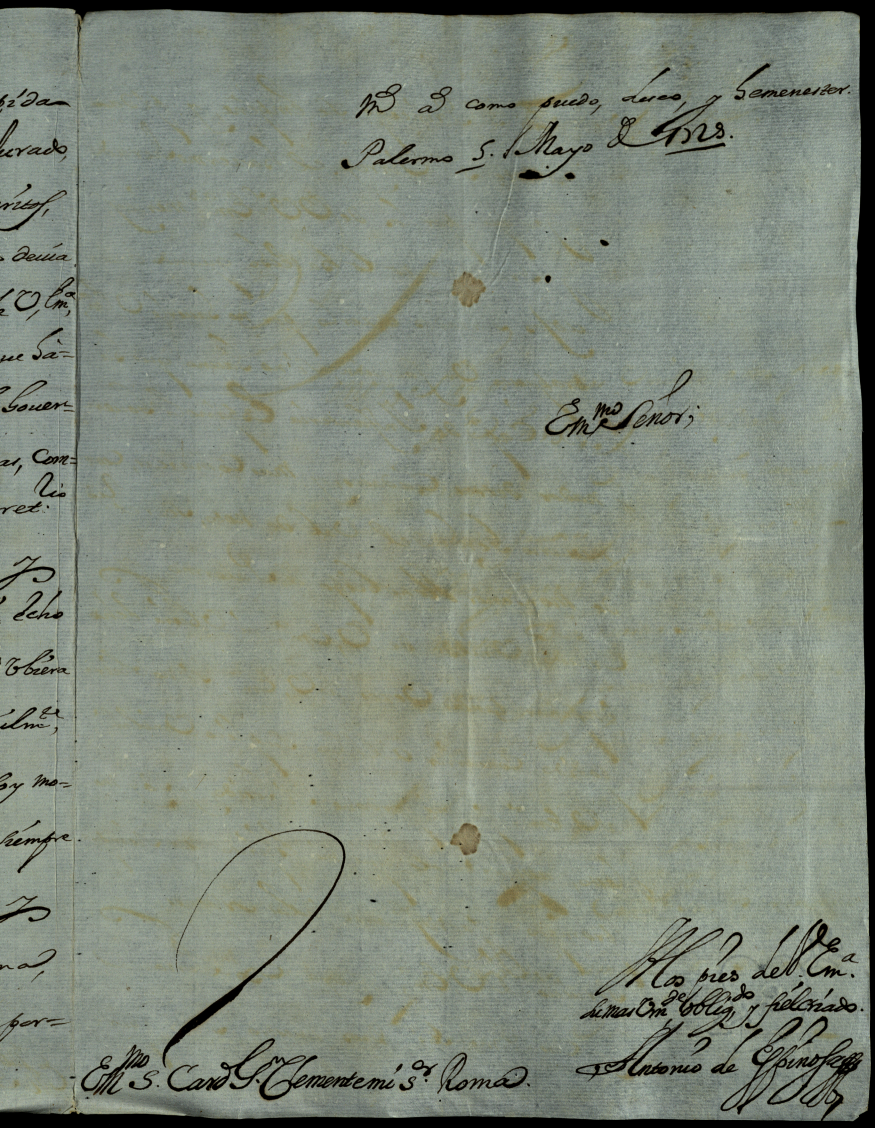 pida
jurado,
critos,
devia
V, Em.ª,
que há=
Gover=
as, com=
ret.rio
y
echo
Vbiera
ilm.te,
oy mo=
siempre
y
nad,
por=
m.s a.s como puedo, deseo, y hemenester.
Palermo 5. Mayo de 1728.
Em.mo Señor;
A los pies de V. Em.ª
su mas Um.de oblig.do y fiel criado.
Antonio de Espinosa
Em.mo S. Card G.n Clemente mi S.r Roma.